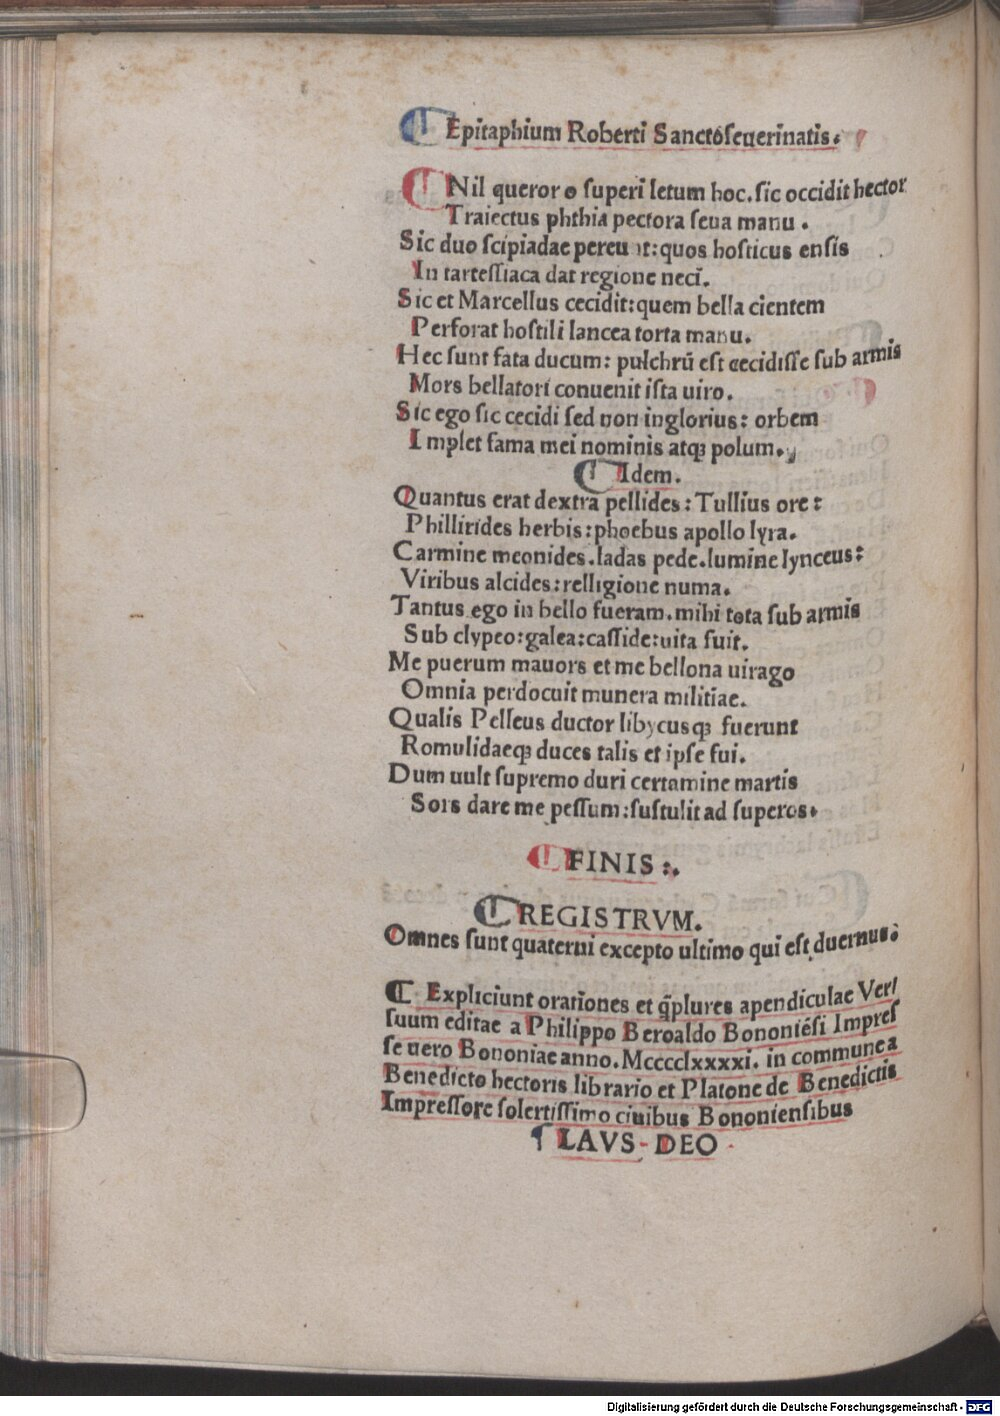 Epitaphium Roberti Sanctoseuerinatis.
Nil queror o superi letum hoc. sic occidit hector
Traiectus phthia pectora seua manu.
Sic duo scipiadae pereunt: quos hosticus ensis
In tartessiaca dat regione neci.
Sic et Marcellus cecidit: quem bella cientem
Perforat hostili lancea torta manu.
Hec sunt fata ducum: pulchrū est cecidisse sub armis
Mors bellatori conuenit ista uiro.
Sic ego sic cecidi sed non inglorius: orbem
Implet fama mei nominis atqꝫ polum.
Idem.
Quantus erat dextra pellides: Tullius ore:
Phillirides herbis: phoebus apollo lyra.
Carmine meonides. ladas pede. lumine lynceus:
Viribus alcides: relligione numa.
Tantus ego in bello fueram. mihi tota sub armis
Sub clypeo: galea: casside: uita fuit.
Me puerum mauors et me bellona uirago
Omnia perdocuit munera militiae.
Qualis Pelleus ductor libycusqꝫ fuerunt
Romulidaeqꝫ duces talis et ipse fui.
Dum uult supremo duri certamine martis
Sors dare me pessum: sustulit ad superos.
FINIS:.
REGISTRVM.
Omnes sunt quaterni excepto ultimo qui est duernus:
Expliciunt orationes et q̄plures apendiculae Ver/
suum editae a Philippo Beroaldo Bononiēsi Impres
se uero Bononiae anno. Mcccclxxxxi. in commune a
Benedicto hectoris librario et Platone de Benedictis
Impressore solertissimo ciuibus Bononiensibus
LAVS-DEO
Digitalisierung gefördert durch die Deutsche Forschungsgemeinschaft - DFG